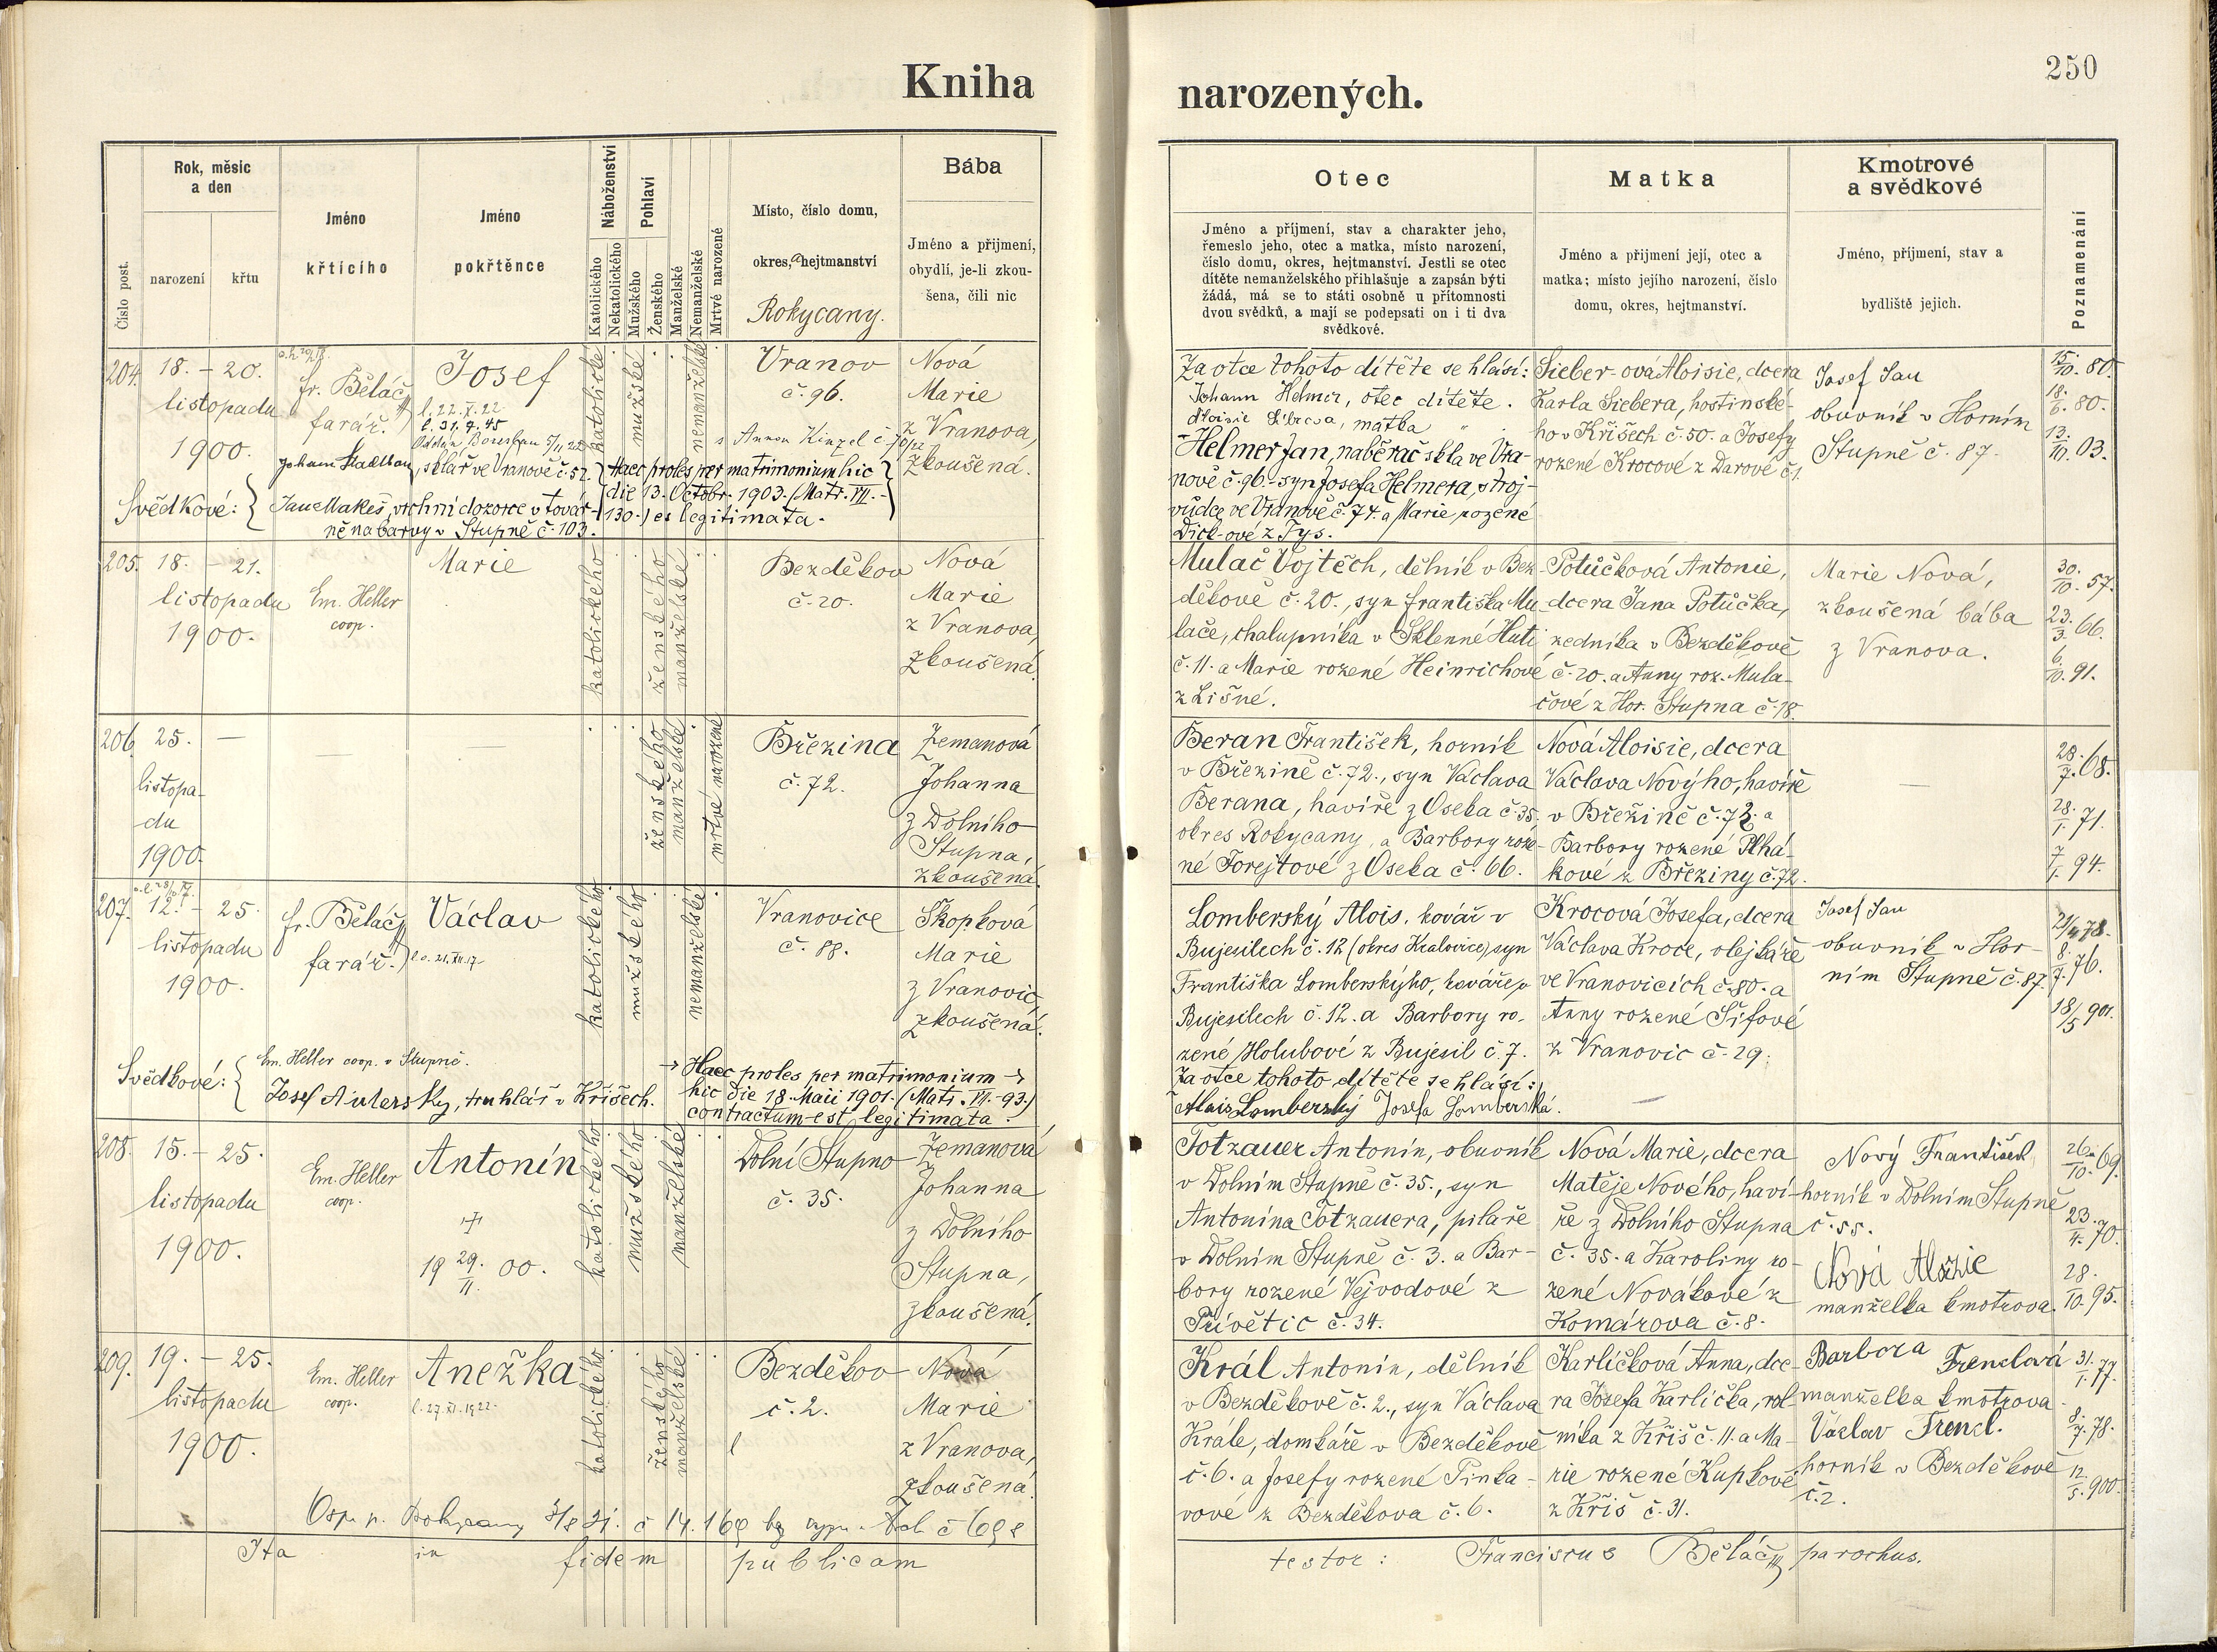 Kniha
narozených.
250
Číslo post.
Rok, měsíc
a den
narození
křtu
Jméno
křtícího
Jméno
pokřtěnce
Náboženství
Katolického
Nekatolického
Pohlaví
Mužského
Ženského
Manželské
Nemanželské
Mrtvé narozené
Místo, číslo domu,
okres, hejtmanství
Rokycany.
Bába
Jméno a přijmení,
obydlí, je-li zkou-
šena, čili nic
Otec
Jméno a příjmení, stav a charakter jeho,
řemeslo jeho, otec a matka, místo narození,
číslo domu, okres, hejtmanství. Jestli se otec
dítěte nemanželského přihlašuje a zapsán býti
žádá, má se to státi osobně u přítomnosti
dvou svědků, a mají se podepsati on i ti dva
svědkové.
Matka
Jméno a přijmení její, otec a
matka; místo jejího narození, číslo
domu, okres, hejtmanství.
Kmotrové
a svědkové
Jméno, příjmení, stav a
bydliště jejich.
Poznamenání
204. 18. – 20.
listopadu
1900.
fr. Běláč
farář.
Josef
l. 22. X. 22
l. 31. 7. 45
katolické
mužské
nemanželské
Vranov
č. 96.
Nová
Marie
z Vranova,
zkoušená.
Johann Stadlbau, sklář ve Vranově č. 52.
Svědkové: { Jan Makeš, vrchní dozorce v továr-
ně na barvy v Stupně č. 103.
Haec proles per matrimonium hic
die 13. Octobr. 1903. (Matr. VII. -
130.) es legitimata.
Za otce tohoto dítěte se hlásí:
Johann Helmer, otec dítěte.
Helmer Jan, naběrač skla ve Vra-
nově č. 96. syn Josefa Helmera, stroj-
vůdce ve Vranově č. 74. a Marie rozené
Dick-ové z Tys.
Sieber-ová Aloisie, dcera
Karla Siebera, hostinské-
ho v Kříšech č. 50. a Josefy
rozené Krocové z Darové č. 1.
Josef Jau
obuvník v Horním
Stupně č. 87.
15./10. 80.
18./6. 80.
13./10. 03.
205. 18. – 21.
listopadu
1900.
Em. Heller
coop.
Marie
katolického
ženského
manželské
Bezděkov
č. 20.
Nová
Marie
z Vranova,
zkoušená.
Mulač Vojtěch, dělník v Bez-
děkově č. 20., syn Františka Mu-
lače, chalupníka v Sklenné Huti
č. 11. a Marie rozené Heinrichové
z Lišné.
Potůčková Antonie,
dcera Jana Potůčka,
zedníka v Bezděkově
č. 20. a Anny roz. Mula-
čové z Hor. Stupna č. 18.
Marie Nová,
zkoušená bába
z Vranova.
30./10. 57.
23./3. 66.
6./10. 91.
206. 25. —
listopa-
du
1900.
ženského
manželské
mrtvé narozené
Březina
č. 72.
Zemanová
Johanna
z Dolního
Stupna,
zkoušená.
Beran František, horník
v Březině č. 72., syn Václava
Berana, havíře z Oseka č. 35.
okres Rokycany, a Barbory roze-
né Forejtové z Oseka č. 66.
Nová Aloisie, dcera
Václava Nového, havíře
v Březině č. 72. a
Barbory rozené Plhá-
kové z Březiny č. 72.
28./7. 68.
28./1. 71.
7./1. 94.
207. 12. – 25.
listopadu
1900.
fr. Běláč
farář.
Václav
katolického
mužského
nemanželské
Vranovice
č. 88.
Skopková
Marie
z Vranovic,
zkoušená.
Svědkové: { Em. Heller coop. v Stupně.
truhlář v Kříšech.
Haec proles per matrimonium
hic die 18. Maii 1901. (Matr. VI. - 93.)
contractum est legitimata.
Lomberský Alois, kovář v
Bujesilech č. 12 (okres Kralovice) syn
Františka Lomberskýho, kováře v
Bujesilech č. 12. a Barbory ro-
zené Holubové z Bujesil č. 7.
Za otce tohoto dítěte se hlásí:
Alois Lomberský Josefa Lomberská.
Krocová Josefa, dcera
Václava Kroce, olejkáře
ve Vranovicích č. 80. a
Anny rozené Šífové
z Vranovic č. 29.
Josef Jau
obuvník v Hor-
ním Stupně č. 87.
8./7. 76.
18/5 901.
208. 15. – 25.
listopadu
1900.
Em. Heller
coop.
Antonín
19 29./11. 00.
katolického
mužského
manželské
Dolní Stupno
č. 35.
Zemanová
Johanna
z Dolního
Stupna,
zkoušená.
Totzauer Antonín, obuvník
v Dolním Stupně č. 35., syn
Antonína Totzauera, pilaře
v Dolním Stupně č. 3. a Bar-
bory rozené Vejvodové z
Přívětic č. 34.
Nová Marie, dcera
Matěje Nového, haví-
ře z Dolního Stupna
č. 35. a Karoliny ro-
zené Novákové z
Komárova č. 8.
Nový František
horník v Dolním Stupně
č. 55.
Nová
manželka kmotrova.
26./10. 69.
23./4. 70.
28./10. 95.
209. 19. – 25.
listopadu
1900.
Em. Heller
coop.
Anežka
l. 27. XI. 1922.
katolického
ženského
manželské
Bezděkov
č. 2.
Nová
Marie
z Vranova,
zkoušená.
Král Antonín, dělník
v Bezděkově č. 2., syn Václava
Krále, domkáře v Bezděkově
č. 6. a Josefy rozené Pinka-
rové z Bezděkova č. 6.
Karlíčková Anna, dce-
ra Josefa Karlíčka, rol-
níka z Kříš č. 11. a Ma-
rie rozené Kupkové
z Kříš č. 31.
Barbora Trenclová
manželka kmotrova.
Václav Trencl.
horník v Bezděkově
č. 2.
31./1. 77.
8./7. 78.
12./5. 900.
Ita in fidem publicam
testor: Franciscus Běláč parochus.